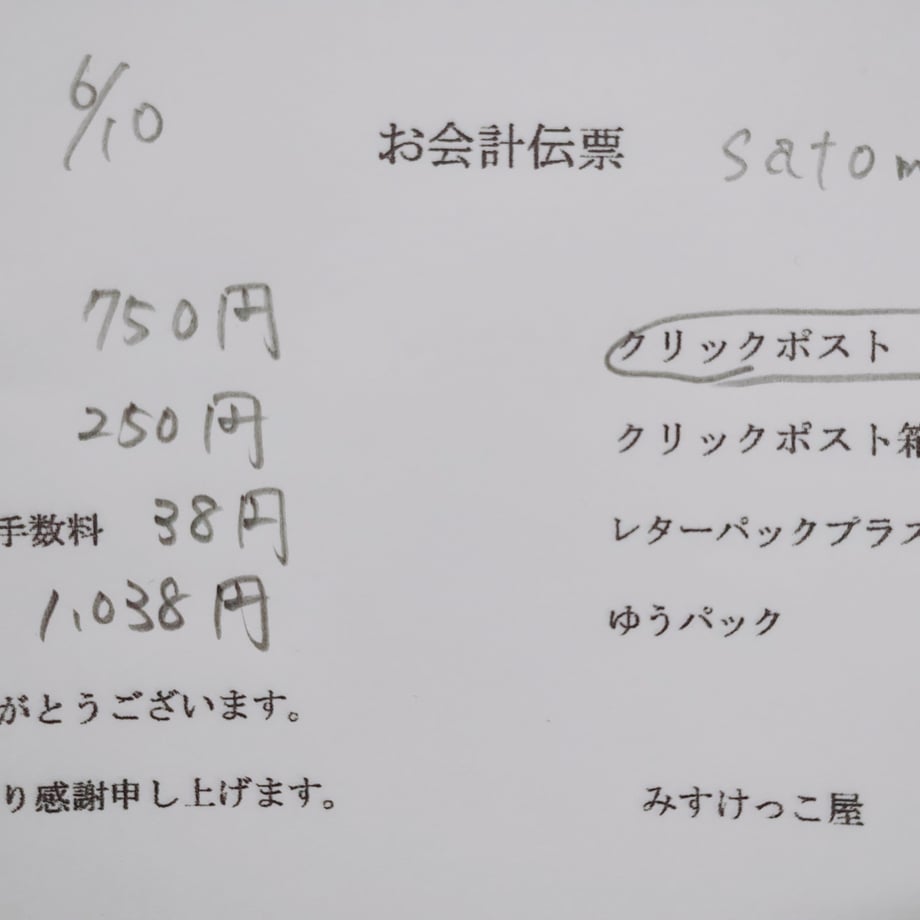 6/10 お会計伝票 satom
750円 クリックポスト
250円 クリックポスト箱
手数料 38円 レターパックプラス
1,038円 ゆうパック
がとうございます。
り感謝申し上げます。 みすけっこ屋